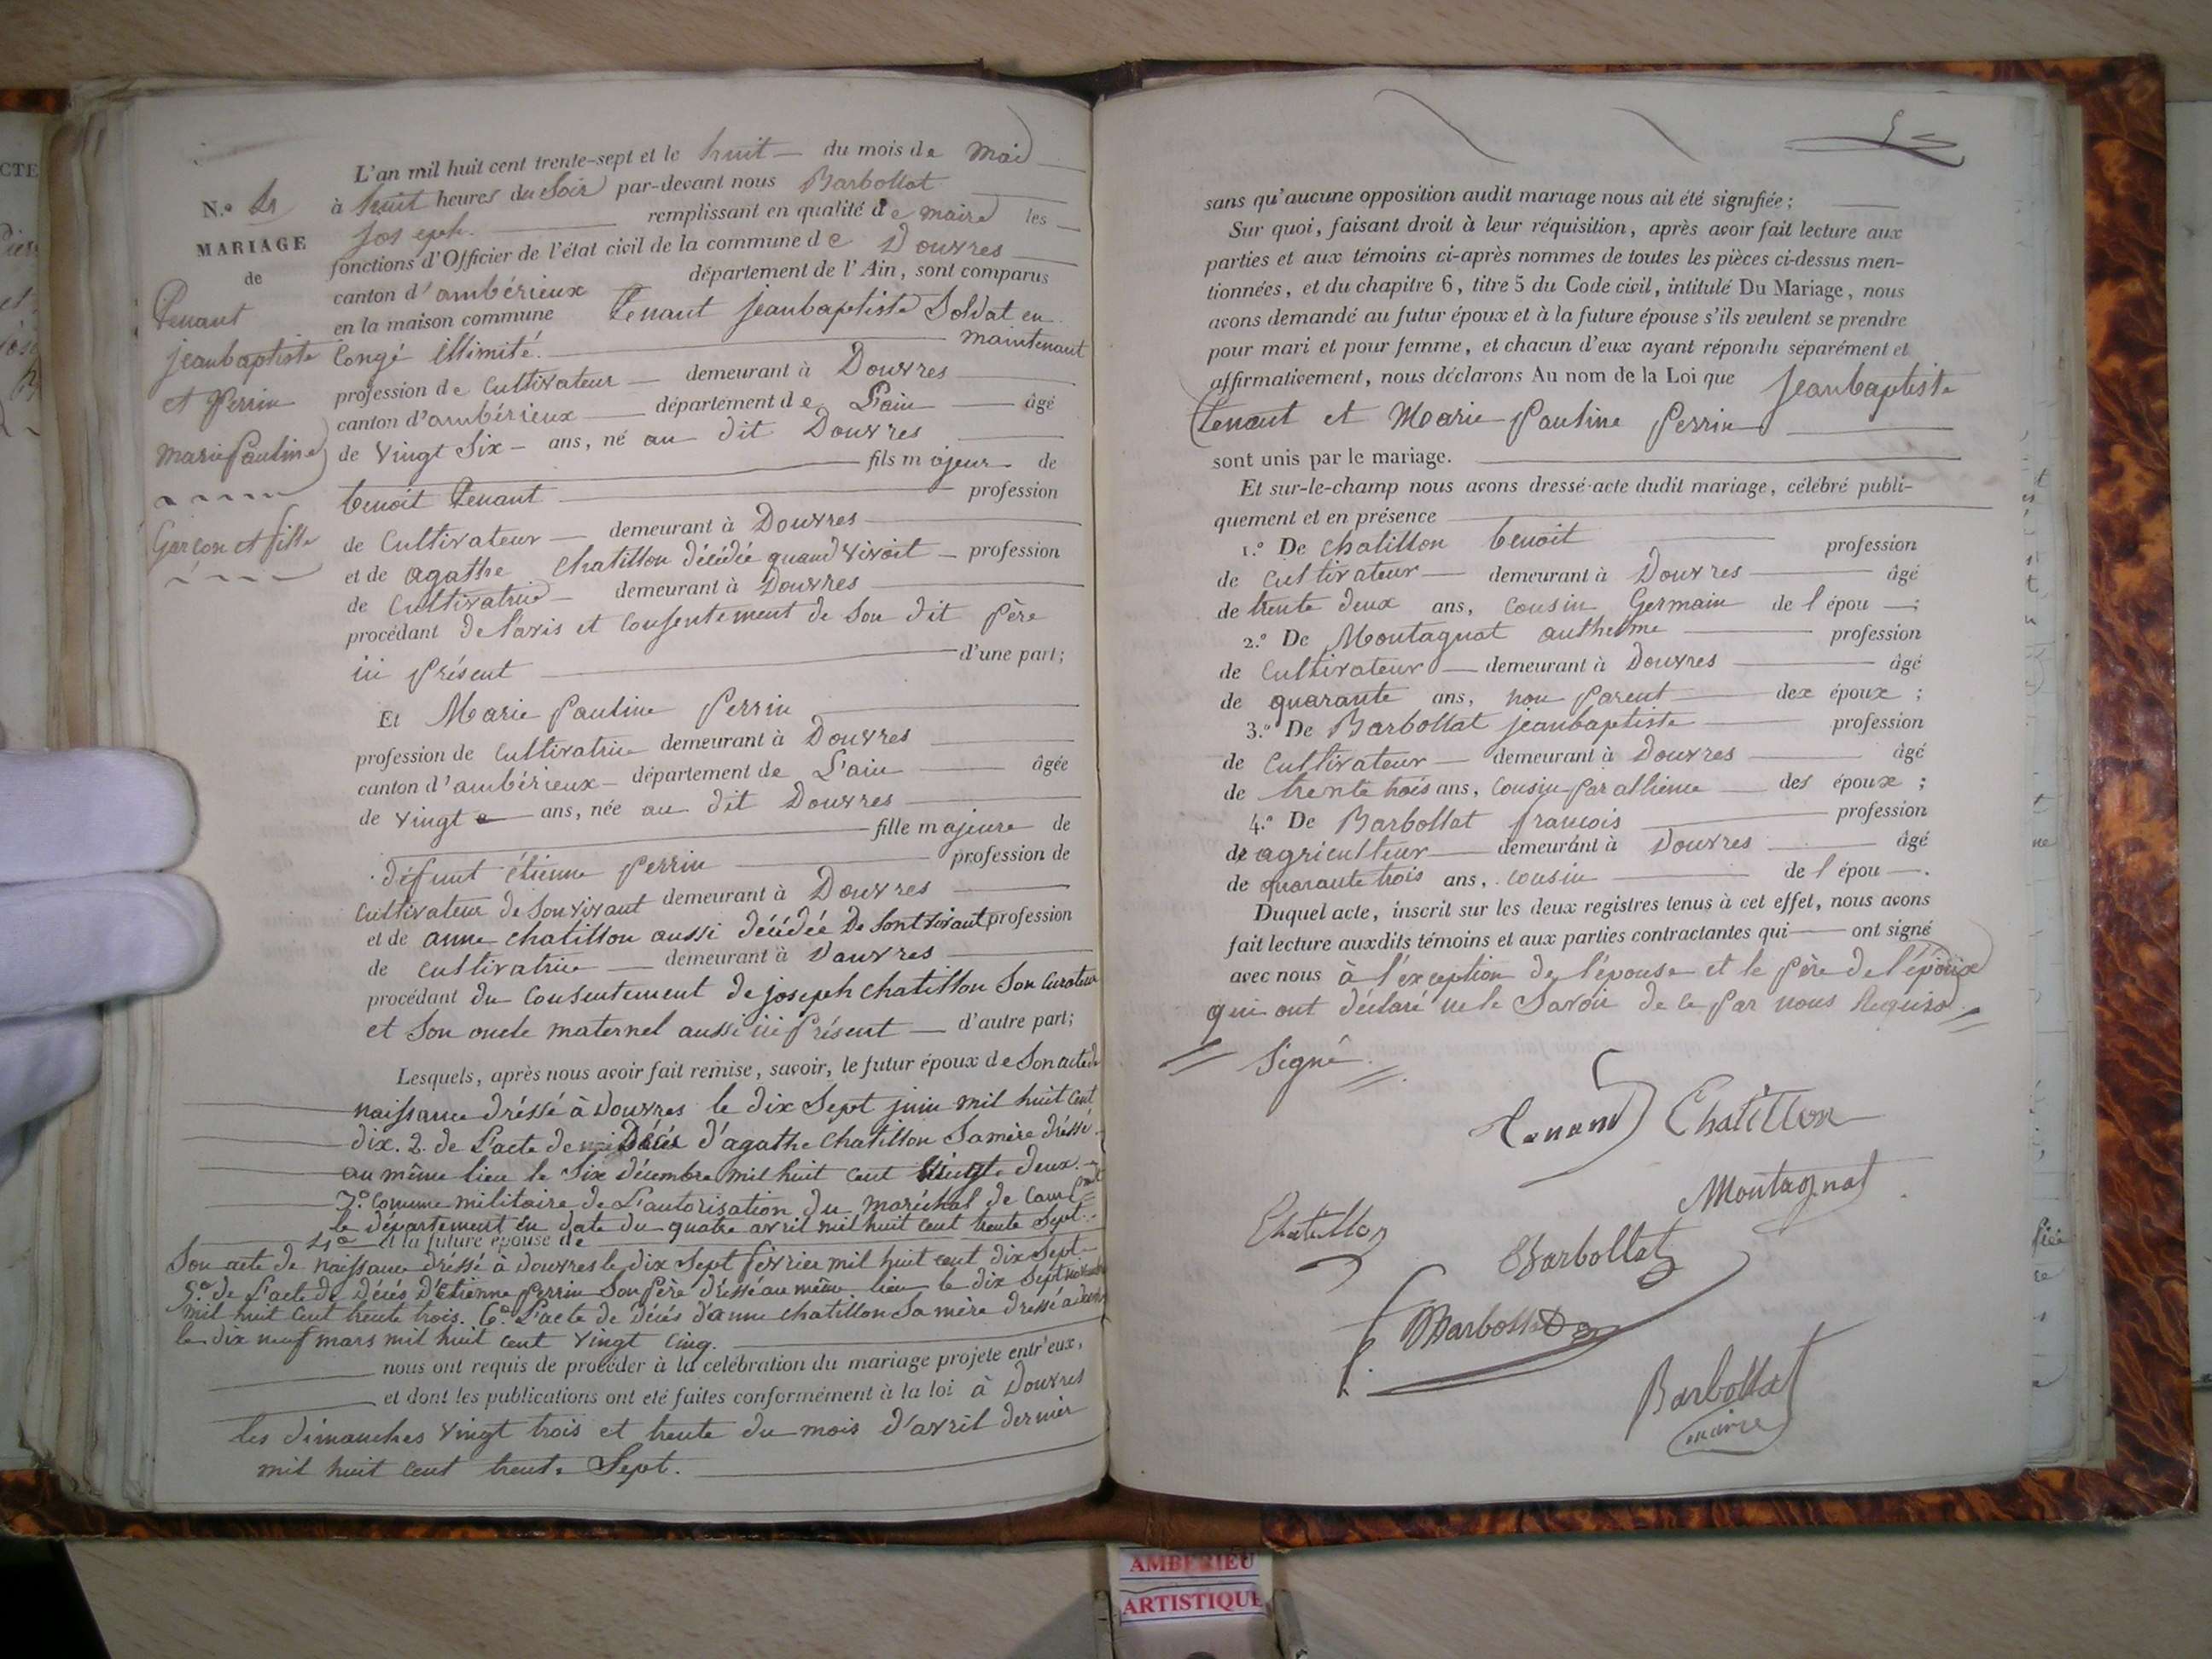 L'an mil huit cent trente-sept et le huit du mois de mai
à huit heures du Soir par-devant nous Barbollat
Joseph. remplissant en qualité de maire les
fonctions d'Officier de l'état civil de la commune de Douvres
canton d'ambérieux département de l'Ain, sont comparus
en la maison commune Tenant jeanbaptiste Soldat en
Congé illimité. maintenant
profession de Cultivateur demeurant à Douvres
canton d'ambérieux département de L'ain âgé
de vingt Six ans, né au dit Douvres
fils majeur de
benoit Tenant profession
de Cultivateur demeurant à Douvres
et de agathe Chatillon décédée quand vivoit profession
de Cultivatrice demeurant à Douvres
procédant de l'avis et Consentement de Son dit Père
ici Présent d'une part;
Et Marie Pauline Perrin
profession de Cultivatrice demeurant à Douvres
canton d'ambérieux département de L'ain âgée
de vingt ans, née au dit Douvres
fille majeure de
défunt étienne Perrin profession de
Cultivateur de Son vivant demeurant à Douvres
et de anne chatillon aussi décédée De Sont vivant profession
de cultivatrice demeurant à Douvres
procédant du Consentement de joseph chatillon Son Curateur
et Son oncle maternel aussi ici Présent d'autre part;
Lesquels, après nous avoir fait remise, savoir, le futur époux de Son acte de
naissance dréssé à Douvres le dix Sept juin mil huit Cent
dix. 2. de L'acte de Décès d'agathe Chatillon Sa mère dréssé
au même lieu le Six décembre mil huit Cent vingt deux.
3.º Comme militaire de L'autorisation du maréchal de Camp
le département en date du quatre avril mil huit Cent trente Sept.
4º et la future épouse de
Son acte de naissance dréssé à Douvres le dix Sept février mil huit cent dix Sept
5.º de L'acte de Décés D'Etienne Perrin Son Père dréssé au même lieu le dix Sept
mil huit Cent trente trois. 6.º L'acte de Décés d'anne chatillon Sa mère dressé à
le dix neuf mars mil huit cent vingt Cinq.
nous ont requis de procéder à la celébration du mariage projeté entr'eux,
et dont les publications ont eté faites conformément à la loi à Douvres
les dimanches vingt trois et trente du mois d'avril dernier
mil huit Cent trente Sept.
N.º
MARIAGE
de
Tenant
jeanbaptiste
et Perrin
marie Pauline
Garcon et fille
sans qu'aucune opposition audit mariage nous ait été signifiée;
Sur quoi, faisant droit à leur réquisition, après avoir fait lecture aux
parties et aux témoins ci-après nommes de toutes les pièces ci-dessus men-
tionnées, et du chapitre 6, titre 5 du Code civil, intitulé Du Mariage, nous
avons demandé au futur époux et à la future épouse s'ils veulent se prendre
pour mari et pour femme, et chacun d'eux ayant répondu séparément et
affirmativement, nous déclarons Au nom de la Loi que Jeanbaptiste
Tenant et Marie Pauline Perrin
sont unis par le mariage.
Et sur-le-champ nous avons dressé acte dudit mariage, célébré publi-
quement et en présence
1.º De chatillon benoit profession
de cultivateur demeurant à Douvres âgé
de trente deux ans, cousin Germain de l épou ;
2.º De Montagnat anthelme profession
de Cultivateur demeurant à Douvres âgé
de quarante ans, non Parent des époux ;
3.º De Barbollat jeanbaptiste profession
de Cultivateur demeurant à Douvres âgé
de trente trois ans, Cousin Par allience des époux ;
4.º De Barbollat francois profession
de agriculteur demeurant à Douvres âgé
de quarante trois ans, cousin de l épou .
Duquel acte, inscrit sur les deux registres tenus à cet effet, nous avons
fait lecture auxdits témoins et aux parties contractantes qui ont signé
avec nous à l'exception de l'épouse et le Père de l'époux
qui ont déclaré ne le Savoir de ce Par nous Requis
Signé.
Tenant Chatillon
Montagnat
Chatillon
Barbollat
Barbollat
Barbollat
maire
AMBERIEU
ARTISTIQUE